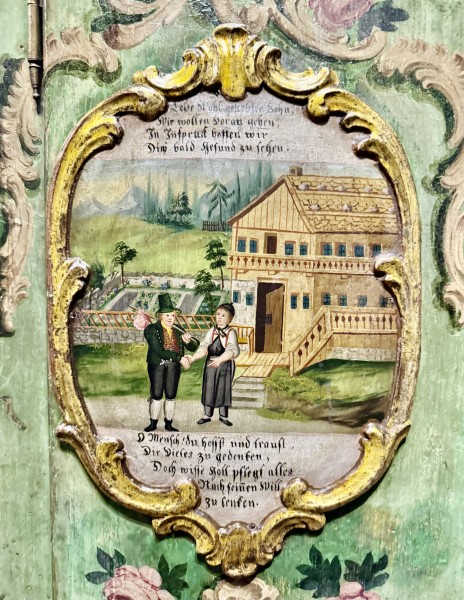 Lebe Wohl geliebter Sohn,
Wir wollen Voran gehen,
In Jnspruck hoffen wir
Dich bald Gesund zu sehen.
O Mensch! du hoffst und traust,
Dir Vieles zu gedenken,
Doch wisse Gott pflegt alles
Nach seinen Will
zu lenken.